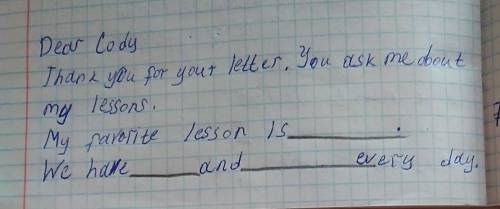 Dear Cody
Thank you for your letter. You ask me about
my lessons.
My favorite lesson is__________.
We have______and____________every day.